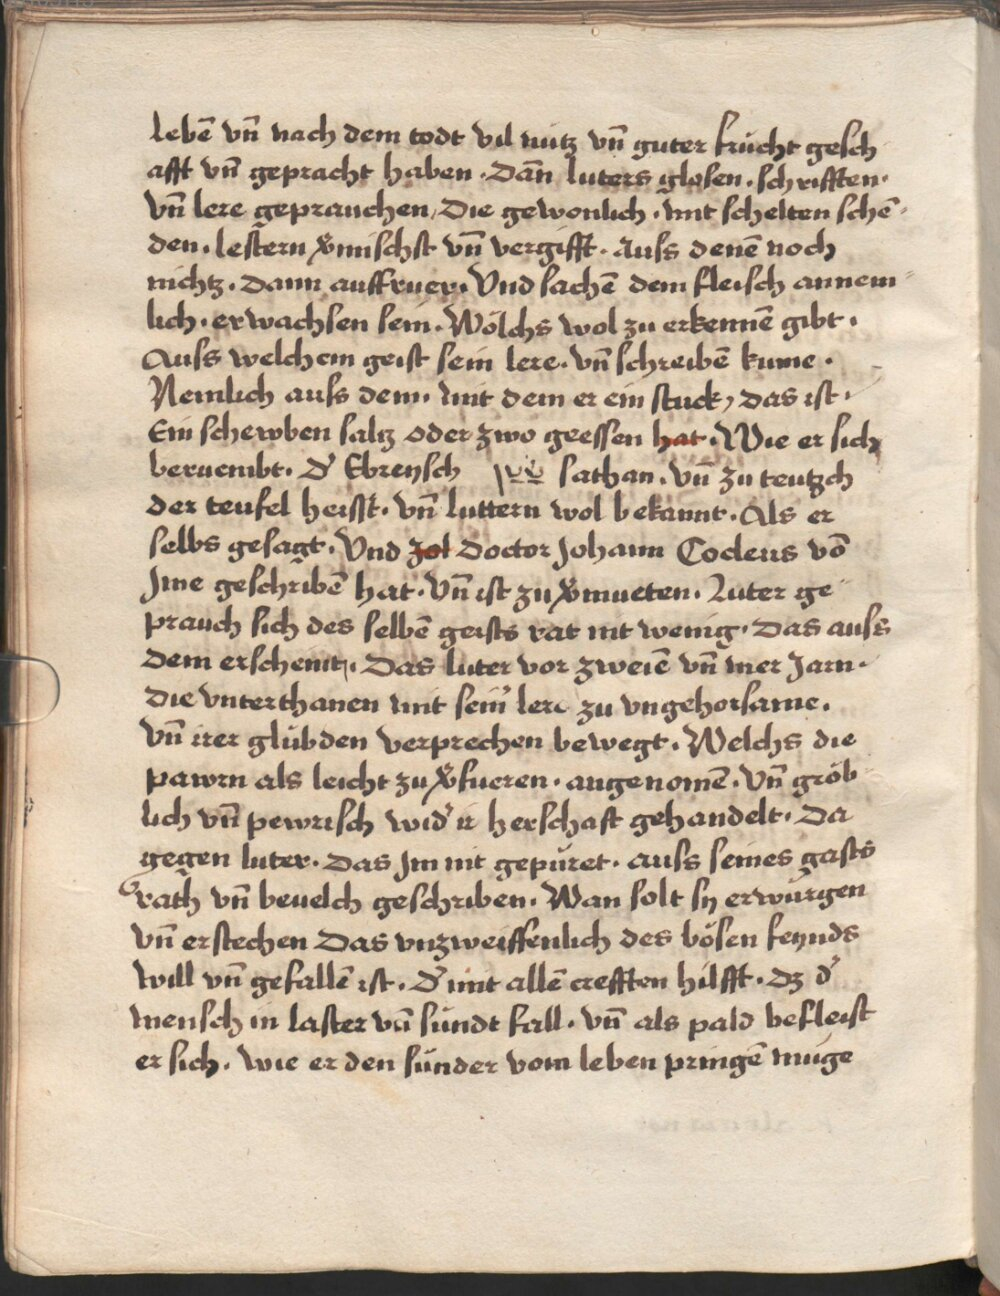 lebē vn̄ nach dem todt vil nutz vn̄ guter frücht gesch
afft vn̄ gepracht haben. Dan̄ luters glosen. schrifften.
vn̄ lere geprauchen, Die gewonlich. mit schelten schē-
den. lestern v̄mischst vn̄ vergifft. Auss denē noch
nichtz. Dann auffruer. Vnd sachē dem fleisch annem-
lich. erwachsen sein. Wölchs wol zu erkennē gibt.
Auss welchem geist sein lere. vn̄ schreibē kume.
Nemlich auss dem. mit dem er ein stuck, Das ist.
Ein schewben saltz oder zwo geessen hat. Wie er sich
beruembt. d' Ebreysch שטן sathan. vn̄ zu teutzch
der teufel heisst. vn̄ luttern wol bekannt. Als er
selbs gesagt. Vnd Doctor Johann Cocleus vō
Jme geschribē hat. Vn̄ ist zu v̄mueten. Luter ge
prauch sich des selbē geists rat nit wenig. Das auss
dem erscheint. Das luter vor zweiē vn̄ mer Jarn.
die vnterthanen mit sein' lere zu vngehorsame.
vn̄ irer glübden verprechen bewegt. Welchs die
pawrn als leicht zu v̄fueren. angenomē. Vn̄ gröb
lich vn̄ pewrisch wid' ir herschaft gehandelt. Da
gegen luter. Das Jm nit gepüret. auss seines gasts
rath vn̄ beuelch geschriben. Man solt sy erwürgen
vn̄ erstechen Das vnzweiffenlich des bösen feynds
will vn̄ gefallē ist. d' mit allē crefften hilfft. dz d'
mensch in laster vn̄ sündt fall. vn̄ als pald befleist
er sich. wie er den sünder vom leben pringē müge